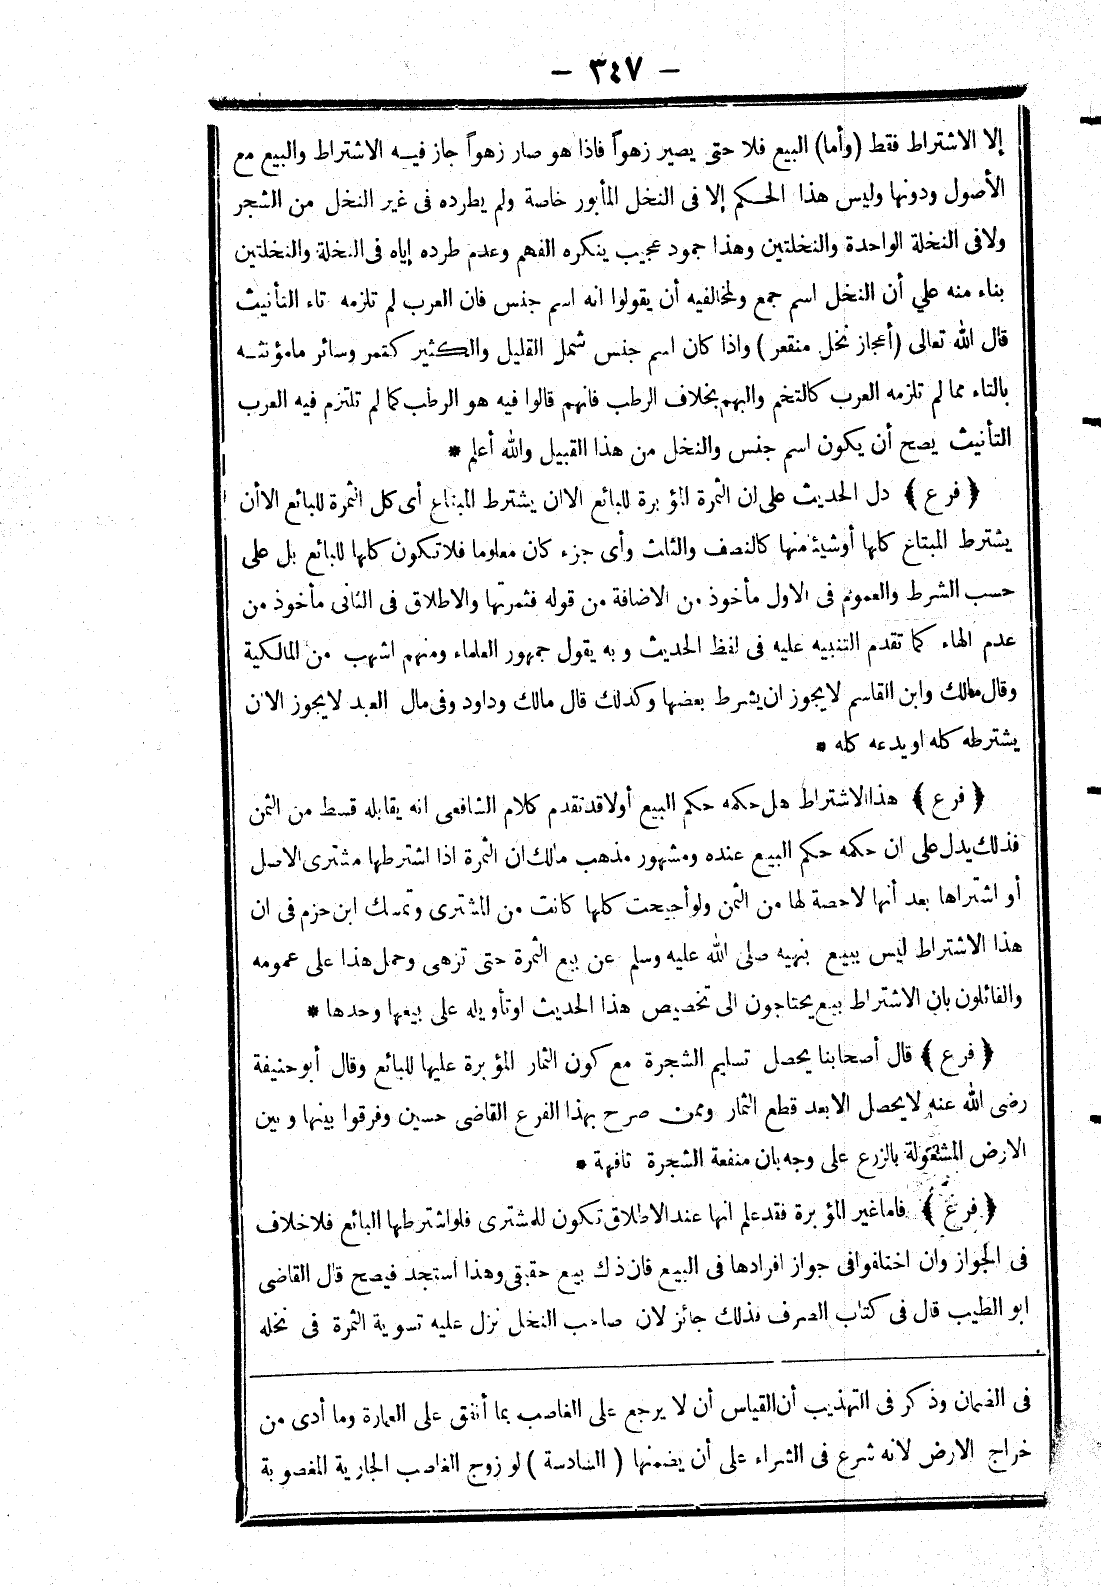 — ٣٤٧ —
إلا الاشتراط فقط (وأما) البيع فلا حتى يصير زهواً فاذا هو صار زهواً جاز فيه الاشتراط والبيع مع
الأصول ودونها وليس هذا الحكم إلا فى النخل المأبور خاصة ولم يطرده فى غير النخل من الشجر
ولا فى النخلة الواحدة والنخلتين وهذا جمود عجيب ينكره الفهم وعدم طرده إياه فى النخلة والنخلتين
بناء منه علي أن النخل اسم جمع ولمخالفيه أن يقولوا انه اسم جنس فان العرب لم تلزمه تاء التأنيث
قال الله تعالى (أعجاز نخل منقعر) واذا كان اسم جنس شمل القليل والكثير كتمر وسائر مامؤنثه
بالتاء مما لم تلزمه العرب كالتخم والبهم بخلاف الرطب فانهم قالوا فيه هو الرطب كما لم تلتزم فيه العرب
التأنيث يصح أن يكون اسم جنس والنخل من هذا القبيل والله أعلم *
﴿ فرع ﴾ دل الحديث على ان الثمرة المؤبرة للبائع الا ان يشترط المبتاع أى كل الثمرة للبائع الا أن
يشترط المبتاع كلها أو شيئا منها كالنصف والثلث وأى جزء كان معلوما فلا تكون كلها للبائع بل على
حسب الشرط والعموم فى الاول مأخوذ من الاضافة من قوله فثمرتها والاطلاق فى الثانى مأخوذ من
عدم الهاء كما تقدم التنبيه عليه فى لفظ الحديث وبه يقول جمهور العلماء ومنهم اشهب من المالكية
وقال مالك وابن القاسم لا يجوز ان يشرط بعضها وكذلك قال مالك وداود وفى مال العبد لا يجوز الا ان
يشترطه كله او يدعه كله *
﴿ فرع ﴾ هذا الاشتراط هل حكمه حكم البيع أولا قد تقدم كلام الشافعى انه يقابله قسط من الثمن
فذلك يدل على ان حكمه حكم البيع عنده ومشهور مذهب مالك ان الثمرة اذا اشترطها مشترى الاصل
أو اشتراها بعد أنها لا حصة لها من الثمن ولو أجيحت كلها كانت من المشترى وتمسك ابن حزم فى ان
هذا الاشتراط ليس ببيع بنهيه صلى الله عليه وسلم عن بيع الثمرة حتى تزهى وحمل هذا على عمومه
والقائلون بان الاشتراط بيع يحتاجون الى تخصيص هذا الحديث او تأويله على بيعها وحدها *
﴿ فرع ﴾ قال أصحابنا يحصل تسليم الشجرة مع كون الثمار المؤبرة عليها للبائع وقال أبو حنيفة
رضى الله عنه لا يحصل الا بعد قطع الثمار وممن صرح بهذا الفرع القاضى حسين وفرقوا بينها وبين
الارض المشغولة بالزرع على وجه بان منفعة الشجرة تافهة *
﴿ فرع ﴾ فاما غير المؤبرة فقد علم انها عند الاطلاق تكون للمشترى فلو اشترطها البائع فلا خلاف
فى الجواز وان اختلفوا فى جواز افرادها فى البيع فان ذلك بيع حقيقى وهذا استجد فيصح قال القاضى
ابو الطيب قال فى كتاب الصرف فذلك جائز لان صاحب النخل نزل عليه تسوية الثمرة فى نخله
فى الضمان وذكر فى التهذيب أن القياس أن لا يرجع على الغاصب بما أنفق على العمارة وما أدى من
خراج الارض لانه شرع فى الشراء على أن يضمنها ( السادسة ) لو زوج الغاصب الجارية المغصوبة